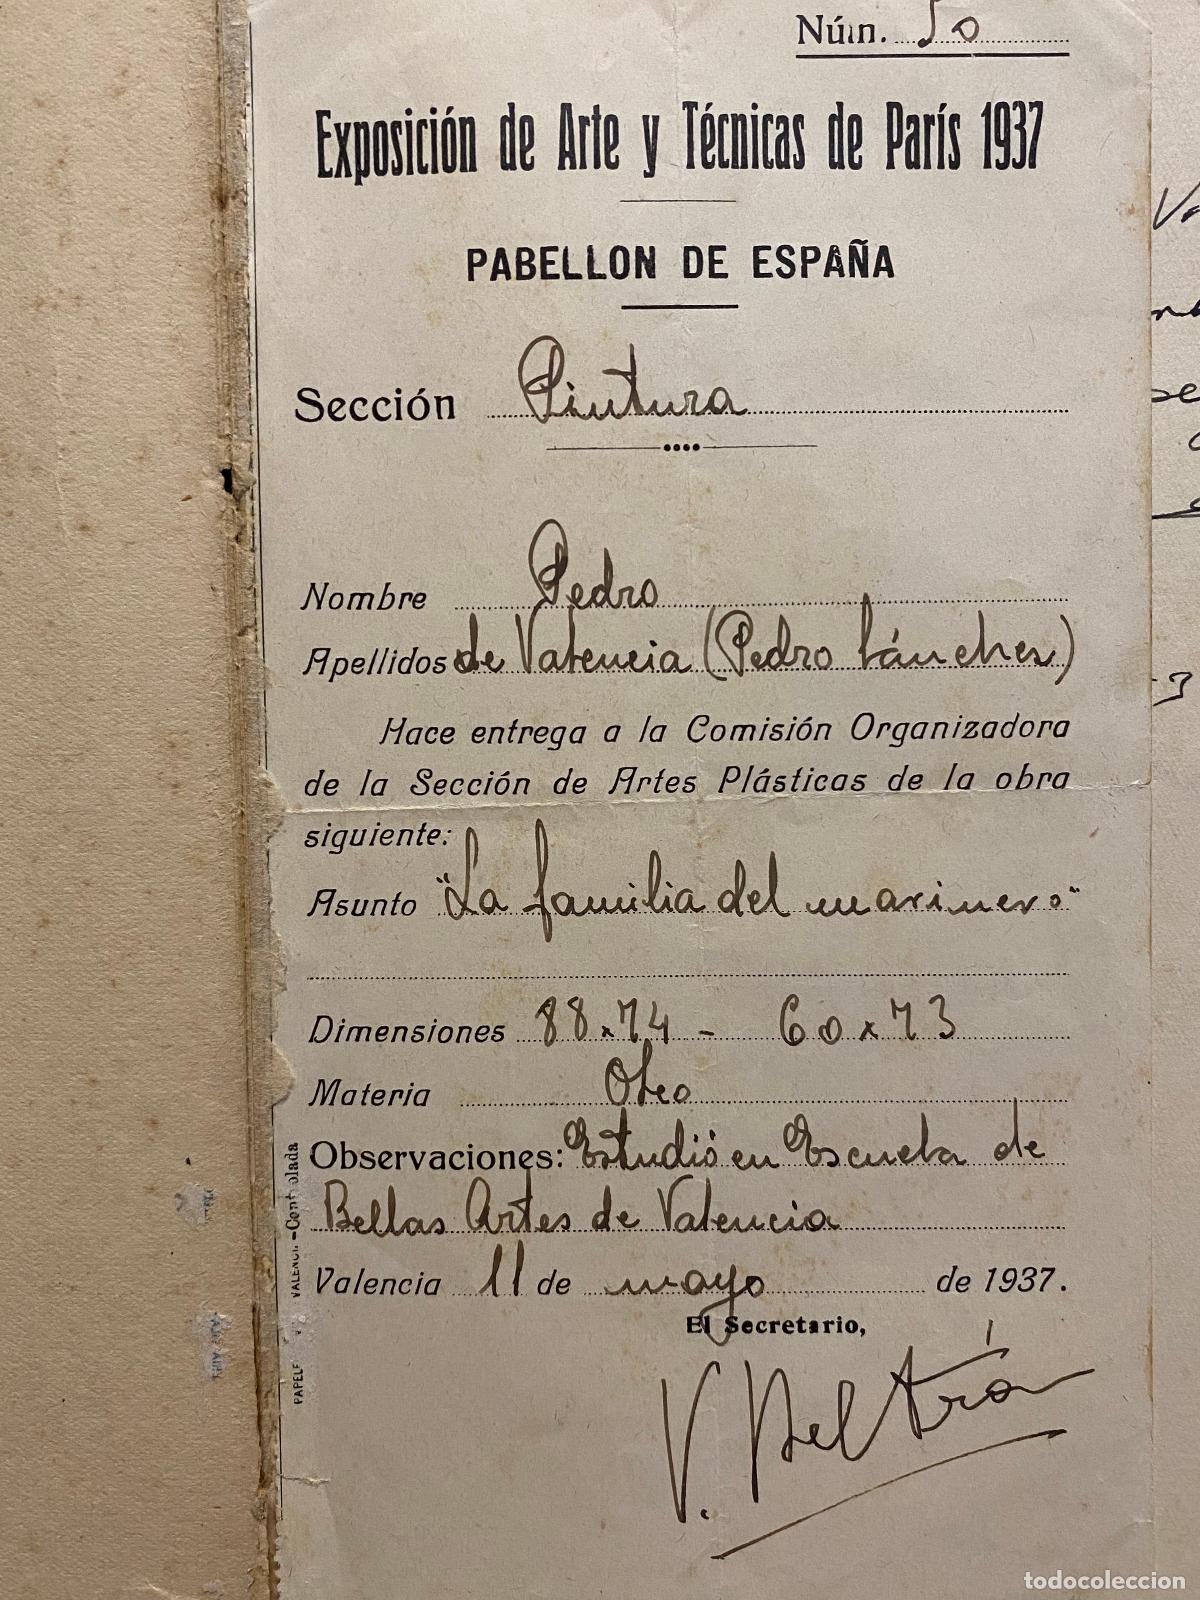 Núm. 50
Exposición de Arte y Técnicas de París 1937
PABELLON DE ESPAÑA
Sección Pintura
Nombre Pedro
Apellidos de Valencia (Pedro Sánchez)
Hace entrega a la Comisión Organizadora
de la Sección de Artes Plásticas de la obra
siguiente:
Asunto "La familia del marinero"
Dimensiones 88 x 74 - 60 x 73
Materia Oleo
Observaciones: Estudió en Escuela de
Bellas Artes de Valencia
Valencia 11 de mayo de 1937.
El Secretario,
V. Beltrán
todocoleccion